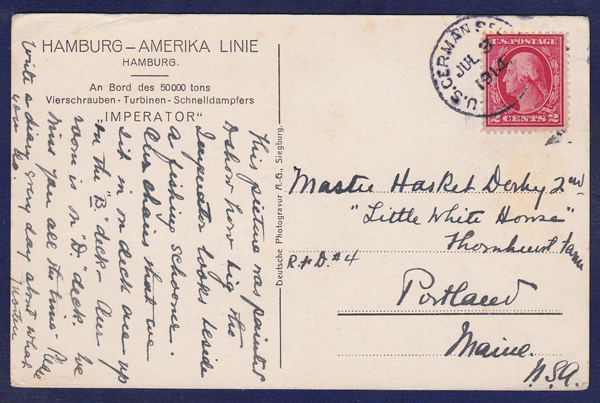 HAMBURG – AMERIKA LINIE
HAMBURG.
An Bord des 50000 tons
Vierschrauben - Turbinen - Schnelldampfers
"IMPERATOR"
This picture was painted
to show how big the
Imperator looks beside
a fishing schooner.
The chairs that we
sit in on deck are up
on the "B" deck. Our
room is on "D" deck. We
miss you all the time. Please
write a diary every day about what
you do.
Mother
Deutsche Photogravur A.-G., Siegburg.
U.S. GERMAN
JUL 3
1914
U.S. POSTAGE
2 CENTS 2
Master Hasket Derby 2nd
"Little White House"
Thornhurst Farm
R.F.D. #4
Portland
Maine.
U.S.A.